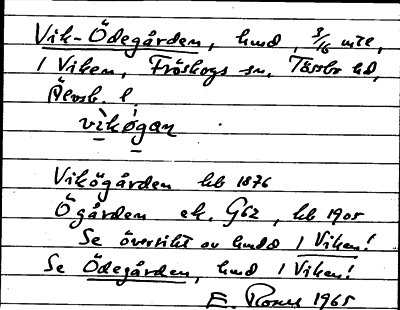 Vik-Ödegården, hmd, 3/16 mtl,
1 Viken, Fröskogs sn, Tössbo hd,
Älvsb. l.
vìkǿgan
Vikögården kb 1876
Ögården ek. G62, kb 1905
Se översikt av hmdd 1 Viken!
Se Ödegården, hmd 1 Viken!
E. 1965